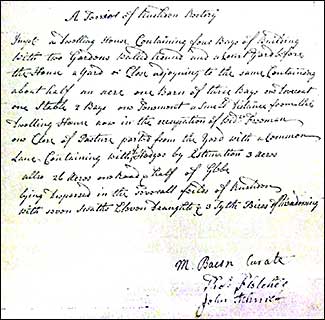 A Terrier of Knution Rectory
Inpt a Dwelling House Containing four Bays of Building
with two Gardens Walled round and a Court Yard before
the House a Yard or Close adjoyning to the same Containing
about half an acre one Barn of three Bays one
one Stable 2 Bays one Tenement a Small distance from the
Dwelling House now in the occupation of Freeman
one Close of Pasture parted from the Yard with a Common
Lane Containing with Hedges by Estimation 3 Acres
allso 26 Acres one Rood & half of Glebe
lying dispersed in the severall fields of
with seven Swaths Eleven Draughts & 3 Sythe
M. Bacon Curate
Tho:s
John